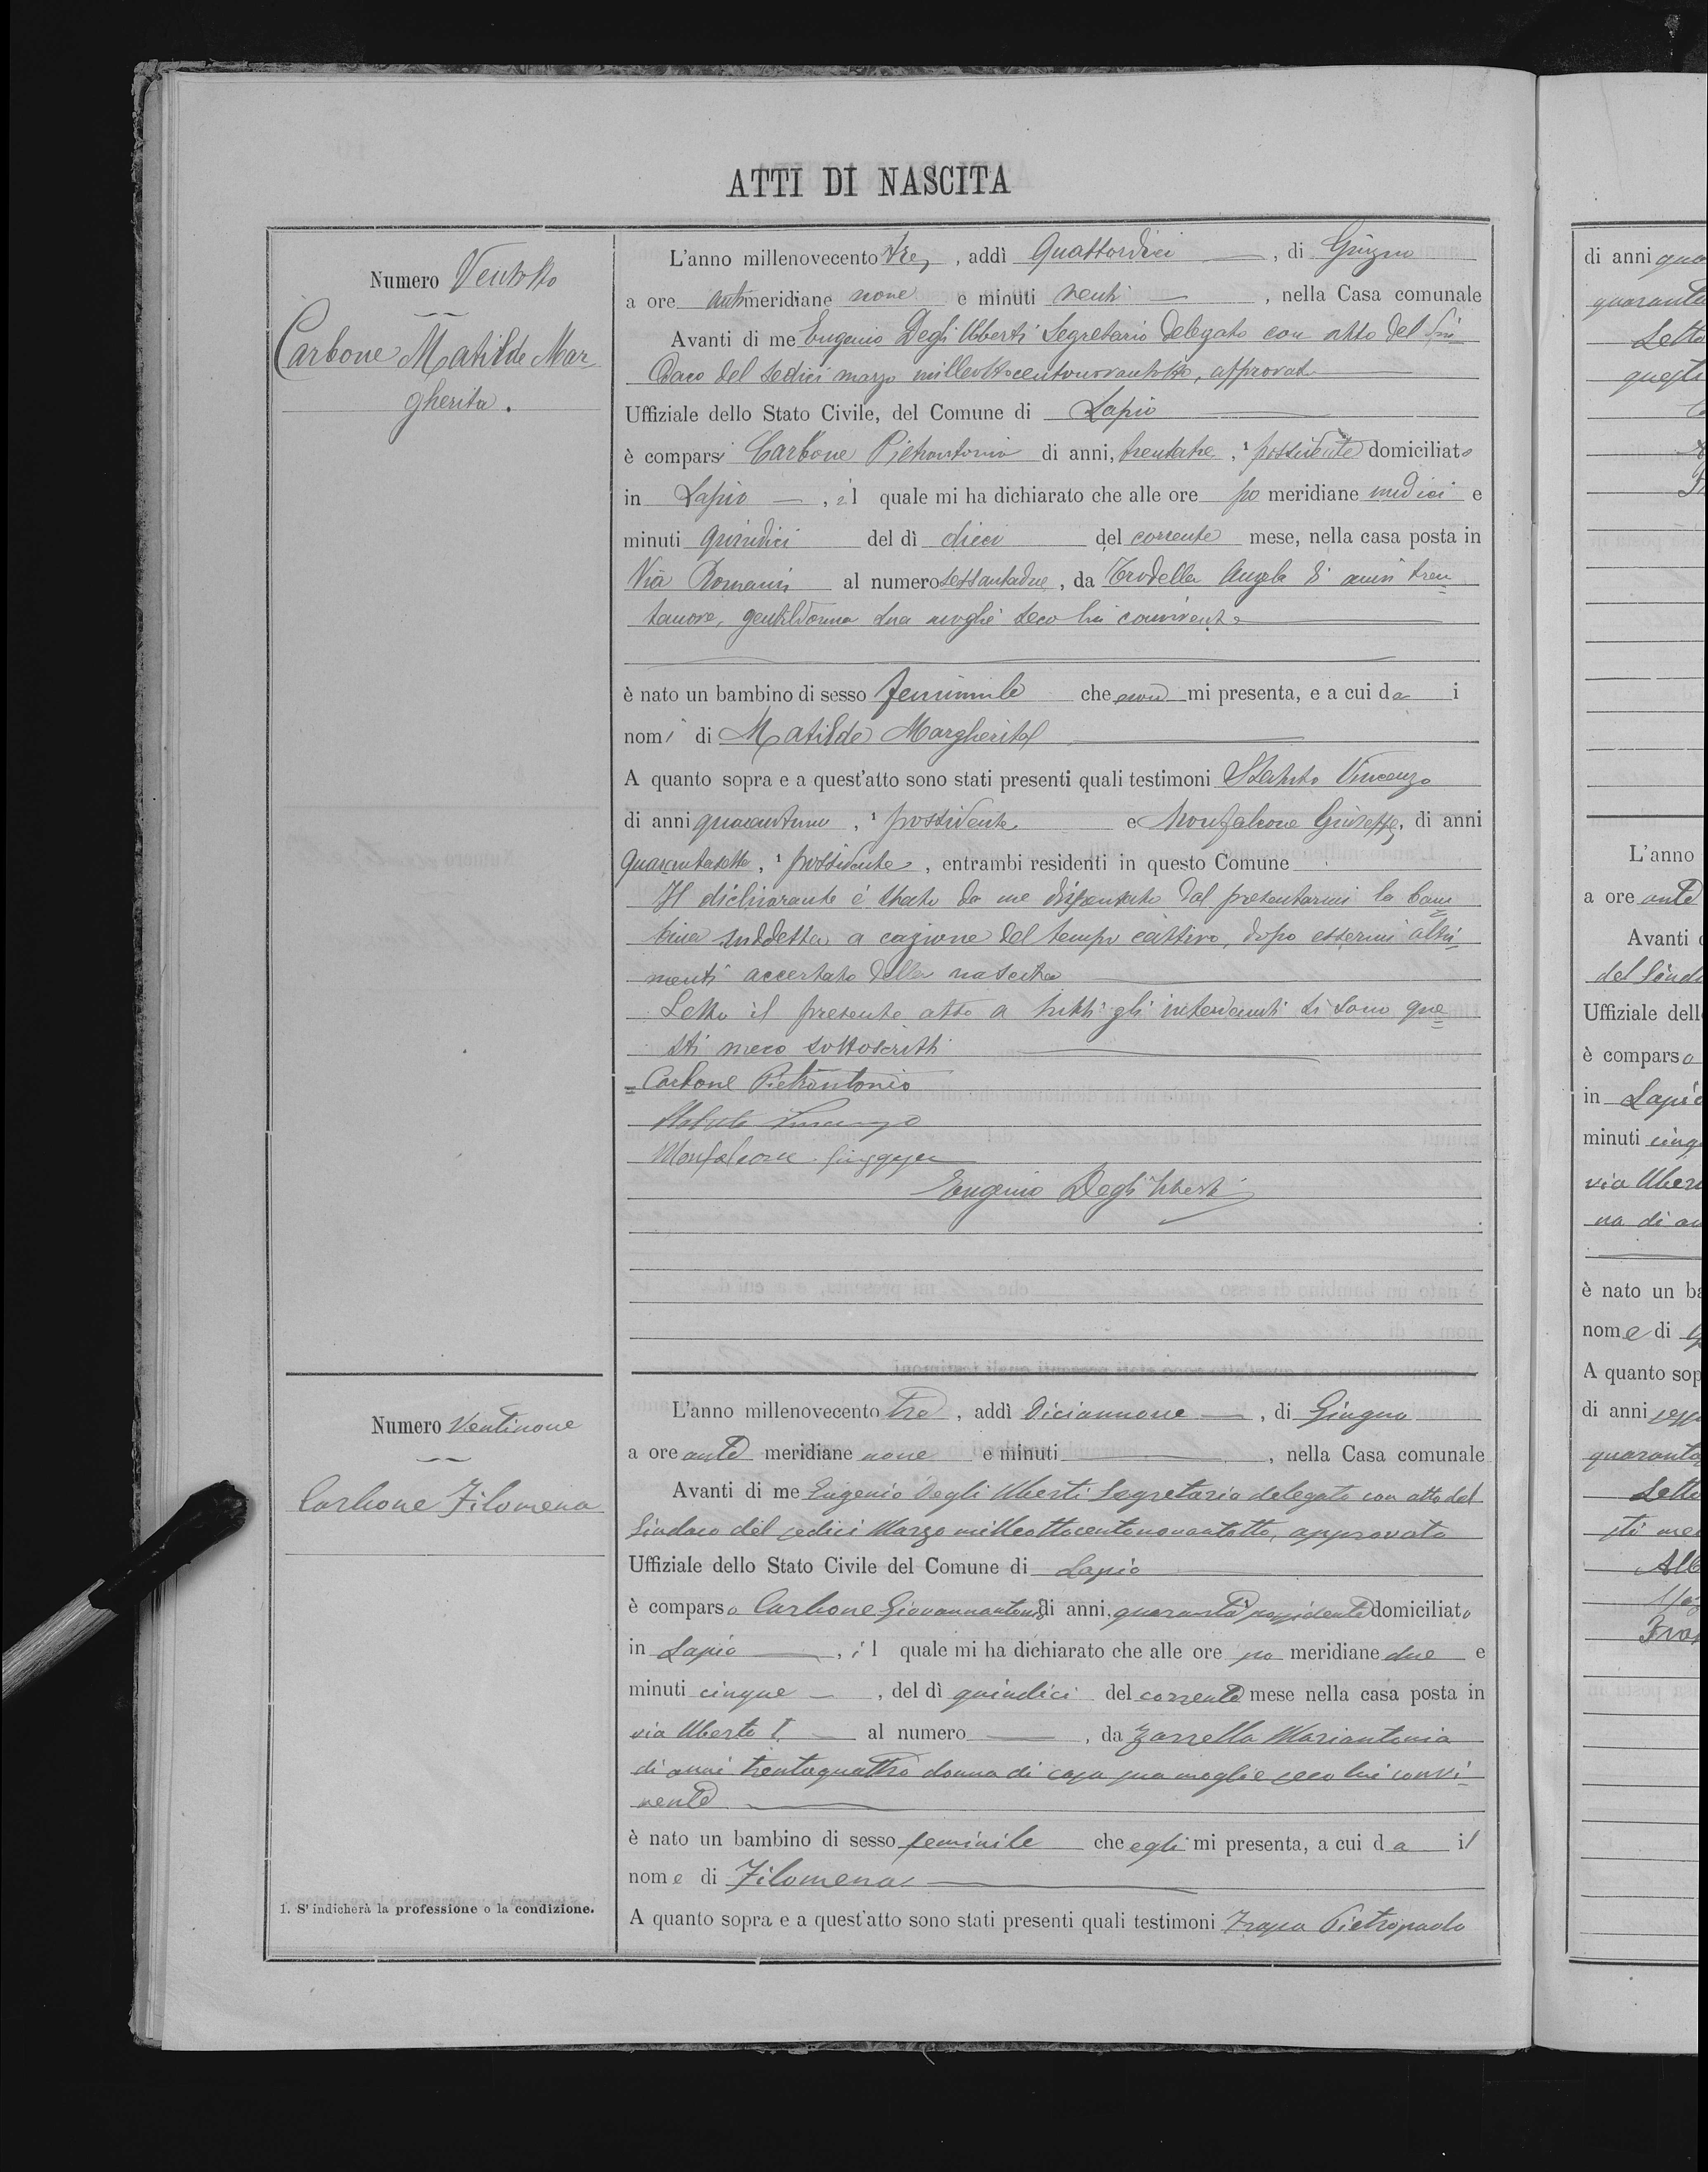 ATTI DI NASCITA
Numero Ventotto
Carbone Matilde Mar
gherita.
L'anno millenovecento tre, addì Quattordici, di Giugno
a ore antimeridiane nove e minuti venti, nella Casa comunale
Avanti di me Eugenio Degli Uberti Segretario delegato con atto del Sin
daco del sedici marzo milleottocentonovantotto, approvato
Uffiziale dello Stato Civile, del Comune di Lapio
è comparso Carbone Pietrantonio di anni, trentatre, ¹ possidente domiciliato
in Lapio, il quale mi ha dichiarato che alle ore po meridiane undici e
minuti quindici del dì dieci del corrente mese, nella casa posta in
Via Romani al numero sessantadue, da Trodella Angela di anni tren
tanove, gentildonna sua moglie seco lui convivente
è nato un bambino di sesso femminile che non mi presenta, e a cui da i
nomi di Matilde Margherita
A quanto sopra e a quest'atto sono stati presenti quali testimoni Statuto Vincenzo
di anni quarantuno, ¹ possidente e Monfalcone Giuseppe, di anni
quarantasette, ¹ possidente, entrambi residenti in questo Comune
Il dichiarante è stato da me dispensato dal presentarmi la bam
bina suddetta a cagione del tempo cattivo, dopo essermi altri
menti accertato della nascita
Letto il presente atto a tutti gli intervenuti si sono que
sti meco sottoscritti
Carbone Pietrantonio
Statuto Vincenzo
Monfalcone Giuseppe
Eugenio Degli Uberti
Numero Ventinove
Carbone Filomena
L'anno millenovecento tre, addì diciannove, di Giugno
a ore ante meridiane nove e minuti, nella Casa comunale
Avanti di me Eugenio Degli Uberti Segretario delegato con atto del
Sindaco del sedici Marzo milleottocentonovantotto, approvato
Uffiziale dello Stato Civile del Comune di Lapio
è comparso Carbone Giovannantonio di anni, quaranta ¹ possidente domiciliato
in Lapio, il quale mi ha dichiarato che alle ore po meridiane due e
minuti cinque, del dì quindici del corrente mese nella casa posta in
via Uberto I al numero, da Zarrella Mariantonia
di anni trentaquattro donna di casa sua moglie seco lui convi
vente
è nato un bambino di sesso feminile che egli mi presenta, a cui da il
nome di Filomena
A quanto sopra e a quest'atto sono stati presenti quali testimoni Trapa Pietropaolo
1. S'indicherà la professione o la condizione.
di anni
L'anno
a ore ante
Avanti
del Sinda
Uffiziale dell
è comparso
in Lapio
minuti cinq
via Uber
na di an
è nato un ba
nome di
A quanto sop
di anni
quaranta
Letto